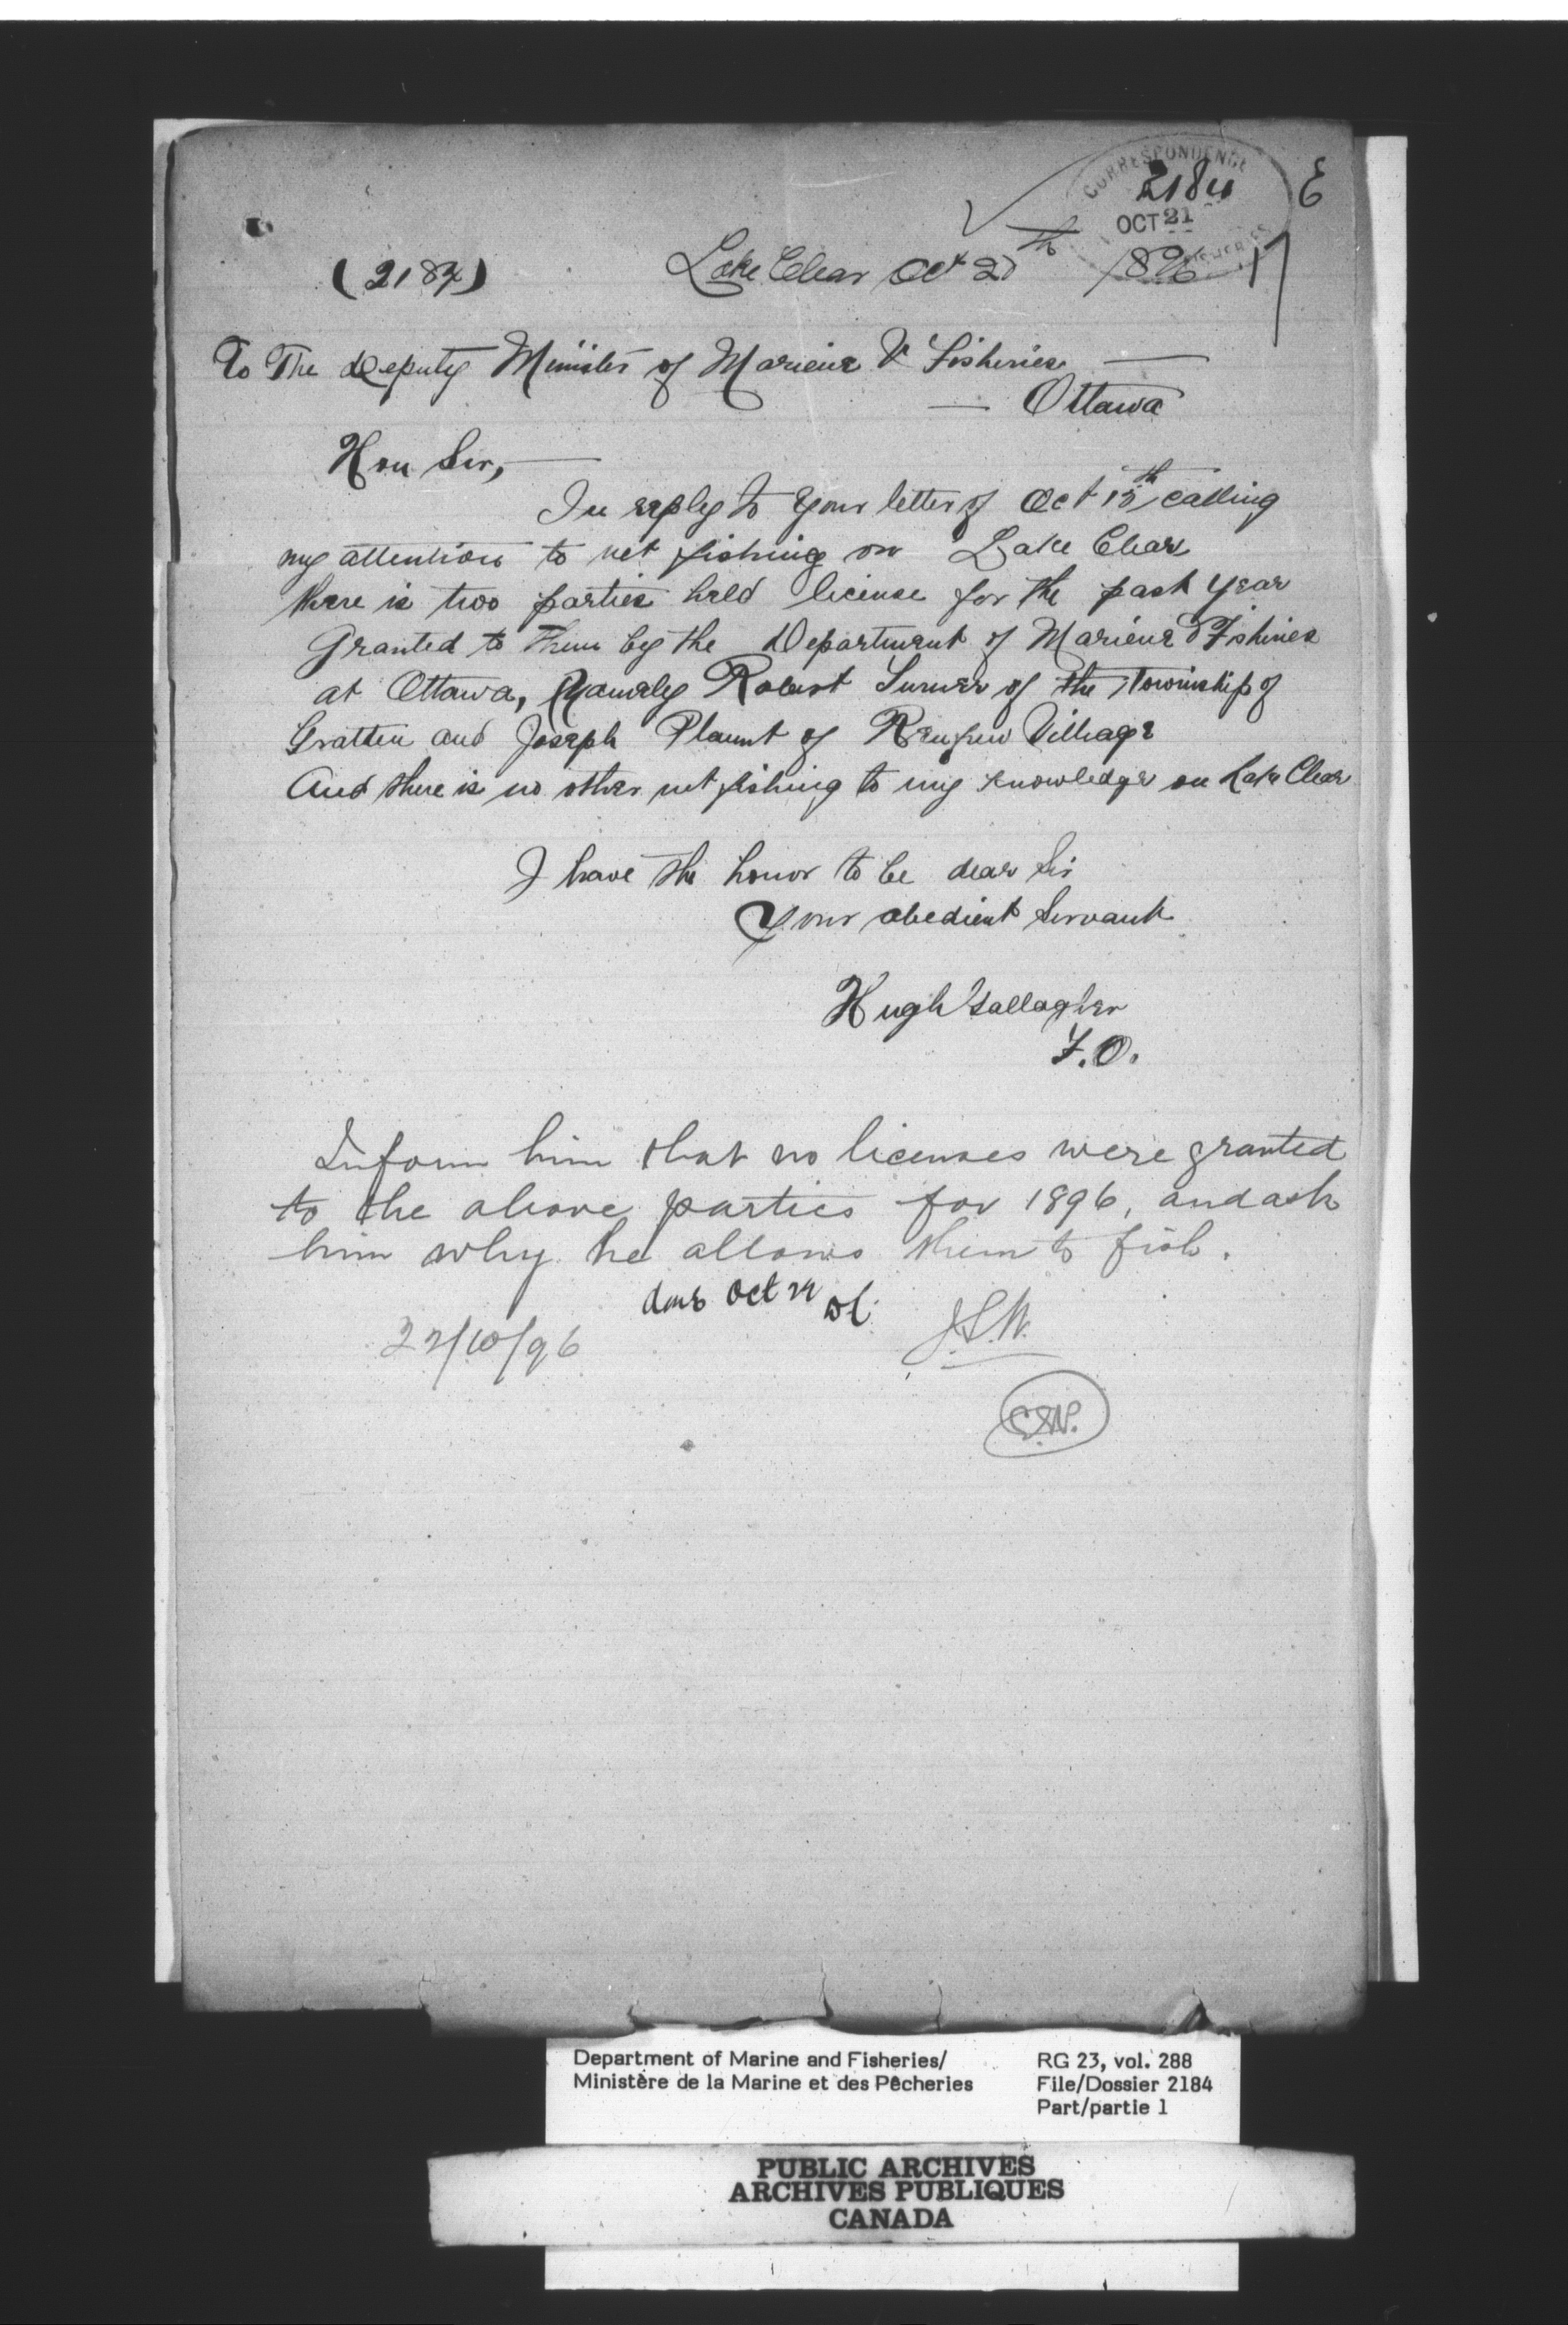 CORRESPONDENCE
2184
OCT 21
E
17
(2184)
Lake Clear Oct 20th 1896
To The deputy Minister of Mariene & Fisheries
Ottawa
Hon Sir,
In reply to your letter of Oct 15th calling
my attention to net fishing on Lake Clear
there is two parties held license for the past year
Granted to Them by the Department of Mariene & Fisheries
at Ottawa, Namely Robert Turner of the Township of
Grattan and Joseph Plaunt of Renfrew Village
And there is no other net fishing to my knowledge on Lake Clear
I have the honor to be dear Sir
Your obedient Servant
Hugh Gallagher
F.O.
Inform him that no licenses were granted
to the above parties for 1896, and ask
him why he allows them to fish.
done Oct 24
22/10/96
J.S.W.
Department of Marine and Fisheries/
Ministère de la Marine et des Pêcheries
RG 23, vol. 288
File/Dossier 2184
Part/partie 1
PUBLIC ARCHIVES
ARCHIVES PUBLIQUES
CANADA